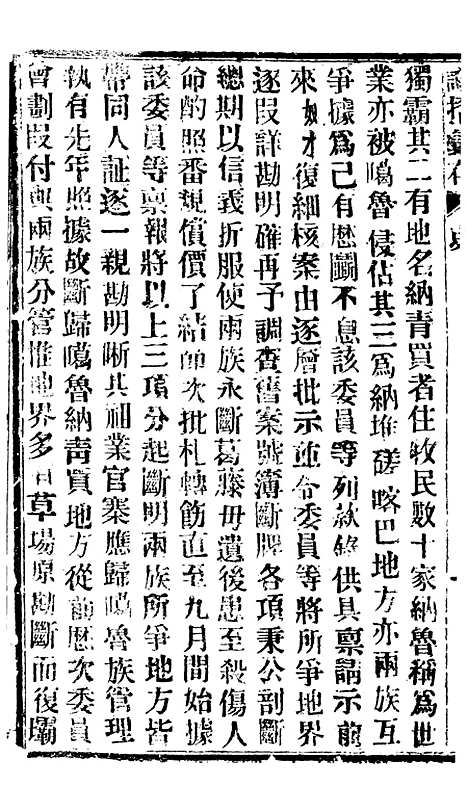 獨霸其二有地名納青買者住牧民數十家納魯稱為世
業亦被噶魯侵佔其三為納堆磋喀巴地方亦兩族互
爭據為己有歷鬬不息該委員等列款錄供具禀請示前
來如才復細核案由逐層批示並令委員等將所爭地界
逐叚詳勘明確再予調查舊案號簿斷牌各項秉公剖斷
總期以信義折服使兩族永斷葛藤毋遺後患至殺傷人
命酌照番規償價了結節次批札轉飭直至九月間始據
該委員等禀報將以上三項分起斷明兩族所爭地方皆
帶同人証逐一親勘明晰其祖業官寨應歸噶魯族管理
執有先年照據故斷歸噶魯納青買地方從前歷次委員
會劃叚付與兩族分管惟地界多草場原勘斷而復霸